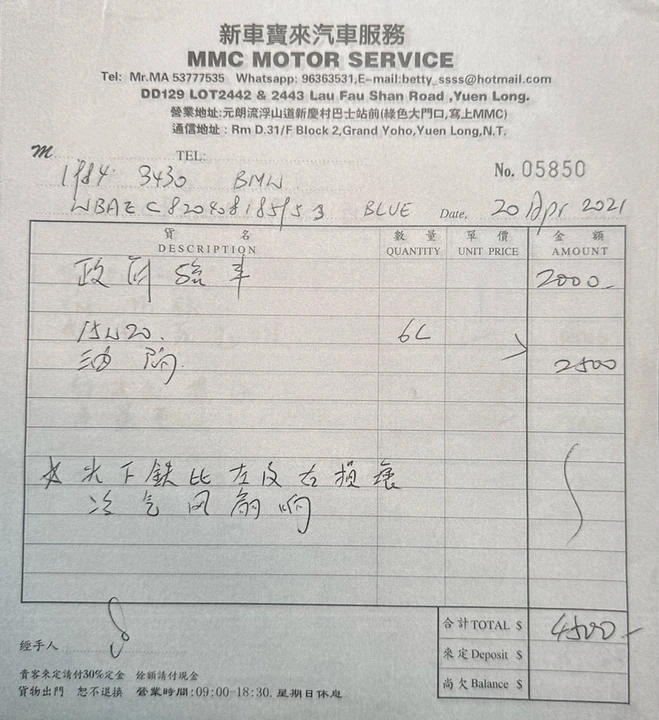 新車寶來汽車服務
MMC MOTOR SERVICE
Tel: Mr.MA 53777535 Whatsapp: 96363531,E-mail:betty_ssss@hotmail.com
DD129 LOT2442 & 2443 Lau Fau Shan Road ,Yuen Long.
營業地址:元朗流浮山道新慶村巴士站前(綠色大門口,寫上MMC)
通信地址: Rm D.31/F Block 2,Grand Yoho,Yuen Long,N.T.
M TEL: No. 05850
1984 3430 BMW
BLUE Date, 20 Apr 2021
貨 名 數 量 單 價 金 額
DESCRIPTION QUANTITY UNIT PRICE AMOUNT
政府驗車 2000-
6L
油隔 2500
下鉄比左及右損壞
冷气风扇响
合計TOTAL $ 4500-
經手人
來定Deposit $
貴客來定請付30%定金 餘額請付現金
尚欠Balance $
貨物出門 恕不退換 營業時間:09:00-18:30. 星期日休息